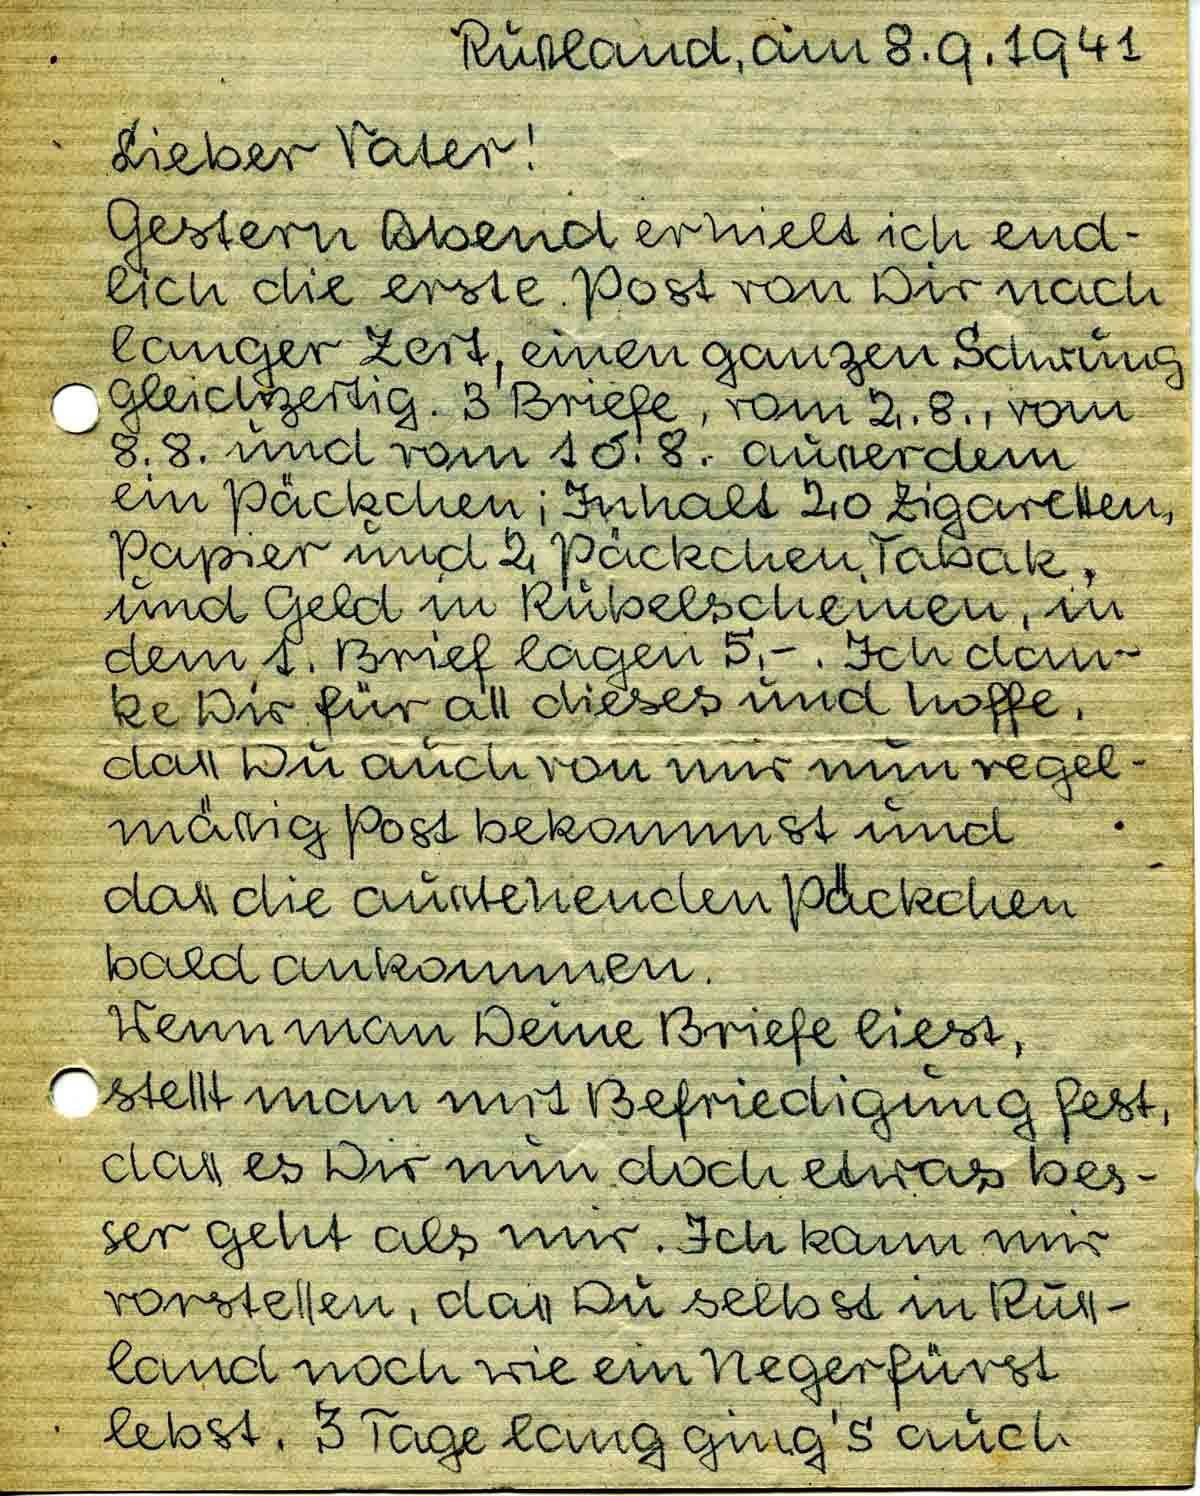 Rußland, am 8.9.1941
Lieber Vater!
Gestern Abend erhielt ich end-
lich die erste Post von Dir nach
langer Zeit, einen ganzen Schwung
gleichzeitig. 3 Briefe, vom 2.8., vom
8.8. und vom 10.8. außerdem
ein Päckchen; Inhalt 20 Zigaretten,
Papier und 2 Päckchen Tabak,
und Geld in Rubelscheinen, in
dem 1. Brief lagen 5,-. Ich dan-
ke Dir für all dieses und hoffe,
daß Du auch von mir nun regel-
mäßig Post bekommst und
daß die ausstehenden Päckchen
bald ankommen.
Wenn man Deine Briefe liest,
stellt man mit Befriedigung fest,
daß es Dir nun doch etwas bes-
ser geht als mir. Ich kann mir
vorstellen, daß Du selbst in Ruß-
land noch wie ein Negerfürst
lebst. 3 Tage lang ging's auch